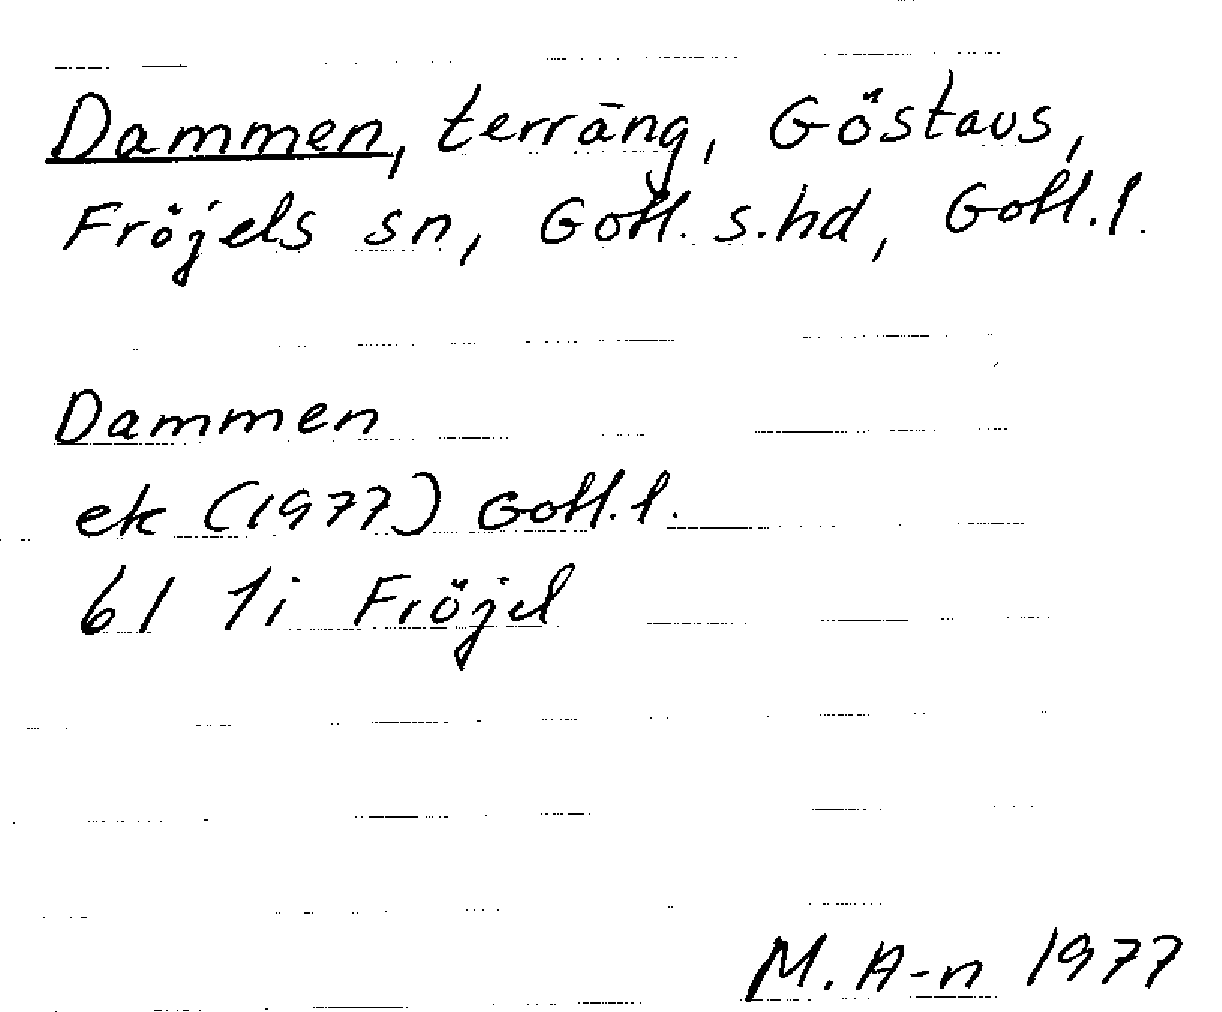 Dammen, terräng, Göstavs,
Fröjels sn, Gotl. s.hd, Gotl.l.
Dammen
ek (1977) Gotl.l.
6I 1i Fröjel
M. A-n 1977